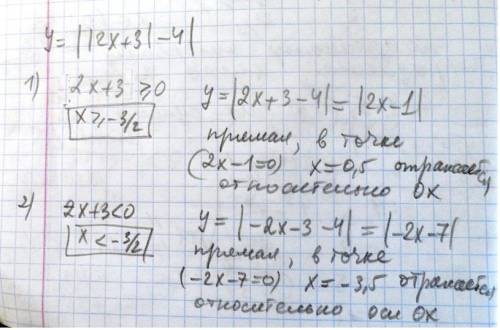 y = ||2x+3|-4|
1) 2x+3 ≥0
x ≥ -3/2
y = |2x+3-4| = |2x-1|
прямая, в точке
(2x-1=0) x=0,5 отражается
относительно OX
2) 2x+3<0
x < -3/2
y = |-2x-3-4| = |-2x-7|
прямая, в точке
(-2x-7=0) x=-3,5 отражается
относительно оси OX